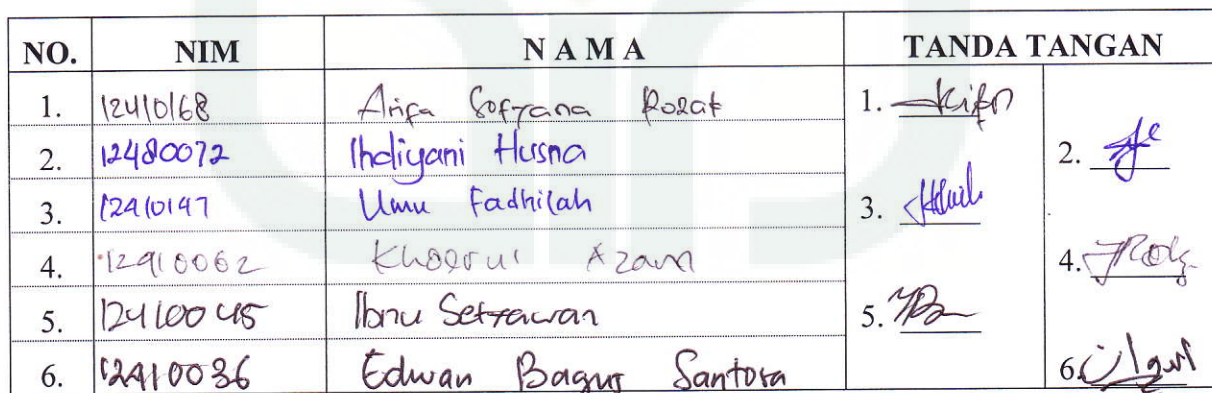 NO. NIM NAMA TANDA TANGAN
1. 12410168 Arifa Sofyana Rozat 1.
2. 12480072 Ihdiyani Husna 2.
3. 12410147 Umu Fadhilah 3.
4. 12410062 Khoerul Azam 4.
5. 12410045 Ibnu Setyawan 5.
6. 12410036 Edwan Bagus Santosa 6.